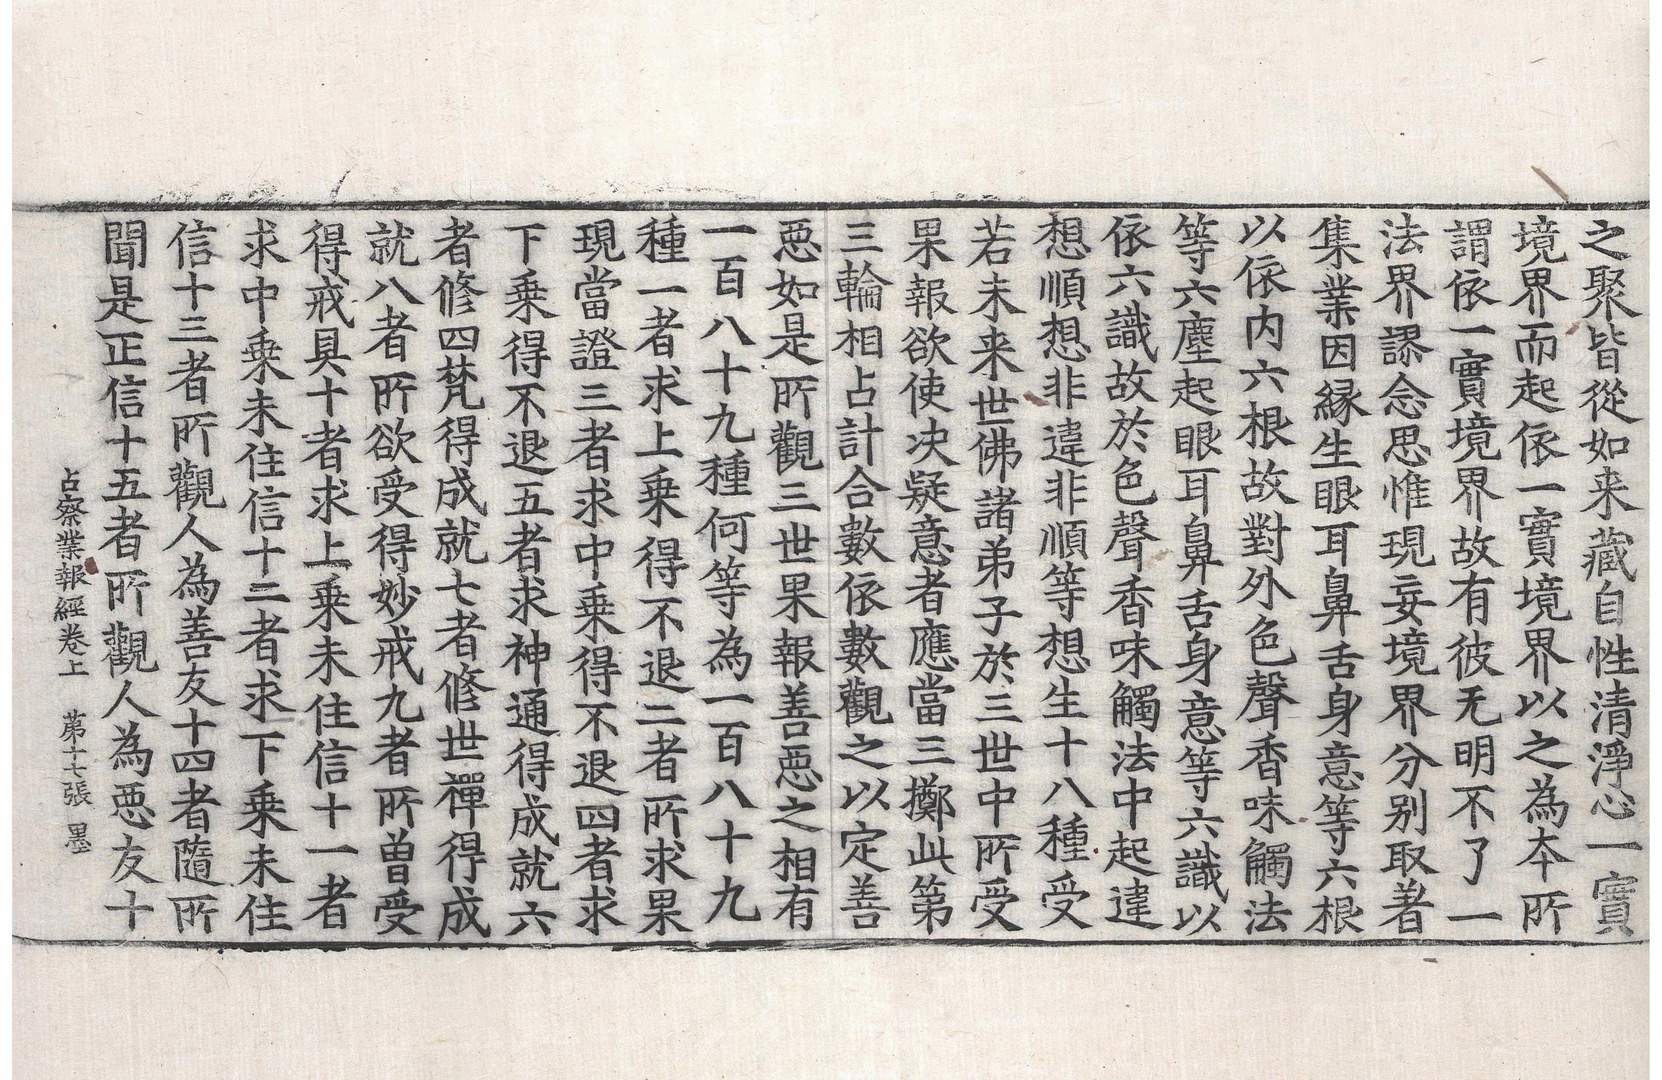 之聚皆從如来藏自性清淨心一實
境界而起依一實境界以之為本所
謂依一實境界故有彼无明不了一
法界謬念思惟現妄境界分别取著
集業因緣生眼耳鼻舌身意等六根
以依内六根故對外色聲香味觸法
等六塵起眼耳鼻舌身意等六識以
依六識故於色聲香味觸法中起違
想順想非違非順等想生十八種受
若未来世佛諸弟子於三世中所受
果報欲使决疑意者應當三擲此第
三輪相占計合數依數觀之以定善
惡如是所觀三世果報善惡之相有
一百八十九種何等為一百八十九
種一者求上乗得不退二者所求果
現當證三者求中乗得不退四者求
下乗得不退五者求神通得成就六
者修四梵得成就七者修世禪得成
就八者所欲受得妙戒九者所曽受
得戒具十者求上乗未住信十一者
求中乗未住信十二者求下乗未住
信十三者所觀人為善友十四者隨所
聞是正信十五者所觀人為惡友十
占察業報經卷上 第十七張 墨